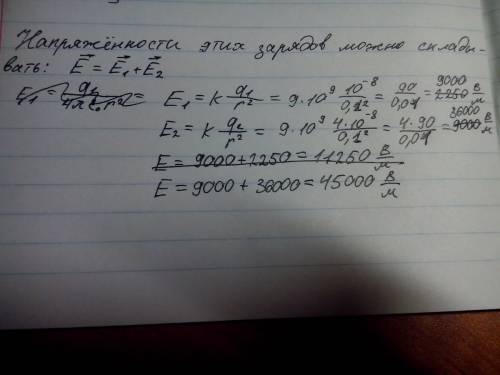 Напряжённости этих зарядов можно склады-
вать: E⃗ = E⃗₁ + E⃗₂
E₁ = k q₁/r² = 9·10⁹ 10⁻⁸/0,1² = 90/0,01 = 9000 В/м
E₂ = k q₂/r² = 9·10⁹ 4·10⁻⁸/0,1² = 4·90/0,01 = 36000 В/м
E = 9000 + 2250 = 11250 В/м
E = 9000 + 36000 = 45000 В/м